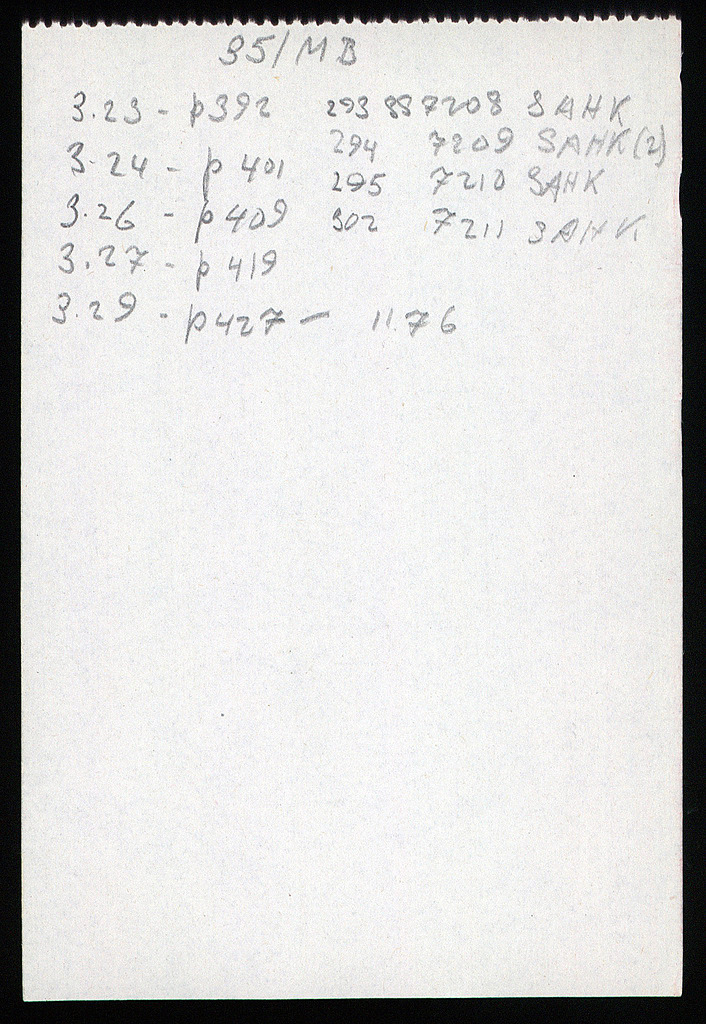 35/MB
3.23 - p392 293 887208 SAHK
294 7209 SAHK(2)
3.24 - p 401
295 7210 SAHK
3.26 - p409 302 7211 SAHK
3.27 - p 419
3.29 - p427 - 11.76